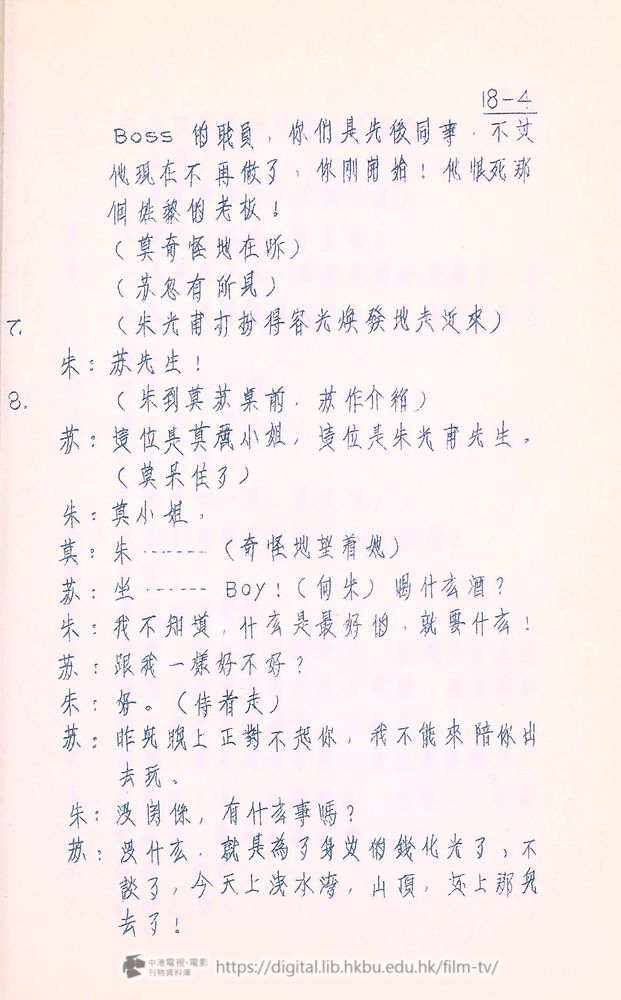 18-4
Boss 的职員，你們是先後同事，不过
他現在不再做了，你刚開始！他恨死那
個姓黎的老板！
（莫奇怪地在听）
（苏忽有所見）
7. （朱光甫打扮得容光焕發地走近來）
朱：苏先生！
8. （朱到莫苏桌前，苏作介紹）
苏：這位是莫小姐，這位是朱光甫先生。
（莫呆住了）
朱：莫小姐，
莫：朱……（奇怪地望着她）
苏：坐…… BOY！（向朱）喝什么酒？
朱：我不知道，什么是最好的，就要什么！
苏：跟我一樣好不好？
朱：好。（侍者走）
苏：昨兒晚上正對不起你，我不能來陪你出
去玩。
朱：没関係，有什么事嗎？
苏：没什么，就是為了身边的錢化光了，不
談了，今天上浅水湾，山頂，还上那兒
去了！
中港電視·電影
刊物資料庫
https://digital.lib.hkbu.edu.hk/film-tv/